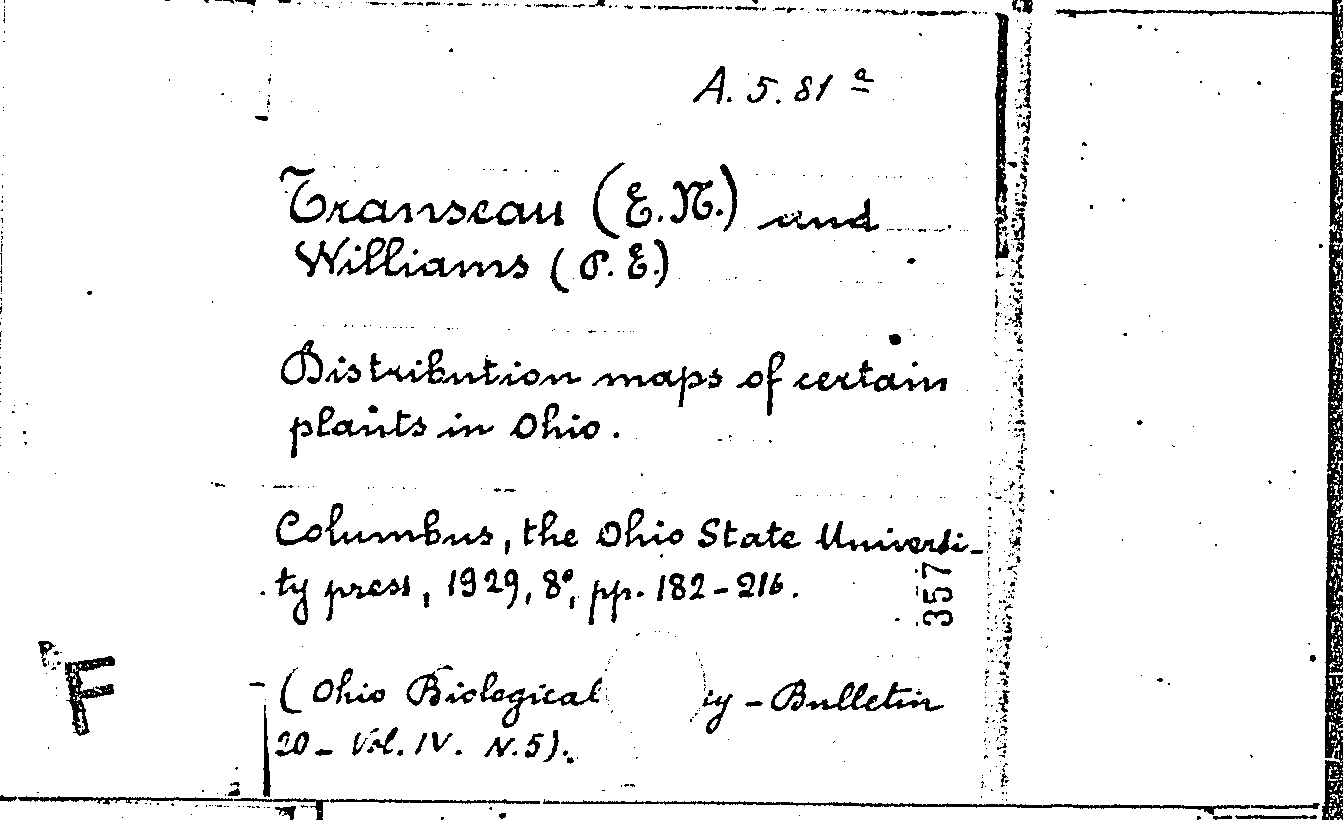 A. 5. 81 a
Transeau (E. N.) and
Williams (P. E.)
Distribution maps of certain
plants in Ohio.
Columbus, the Ohio State Universi-
ty press, 1929, 8°, pp. 182-216.
357
F
(Ohio Biological - Bulletin
20 - Vol. IV. N. 5).